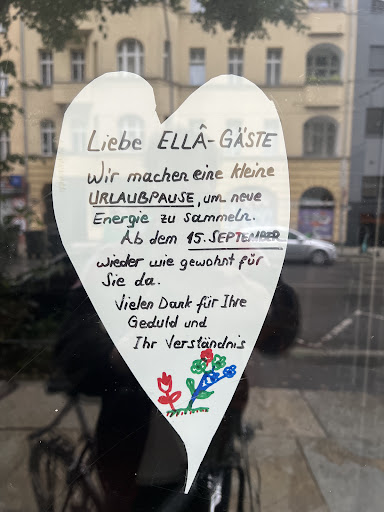 Liebe ELLÂ-GÄSTE
Wir machen eine kleine
URLAUBPAUSE, um neue
Energie zu sammeln.
Ab dem 15. SEPTEMBER
wieder wie gewohnt für
Sie da.
Vielen Dank für Ihre
Geduld und
Ihr Verständnis